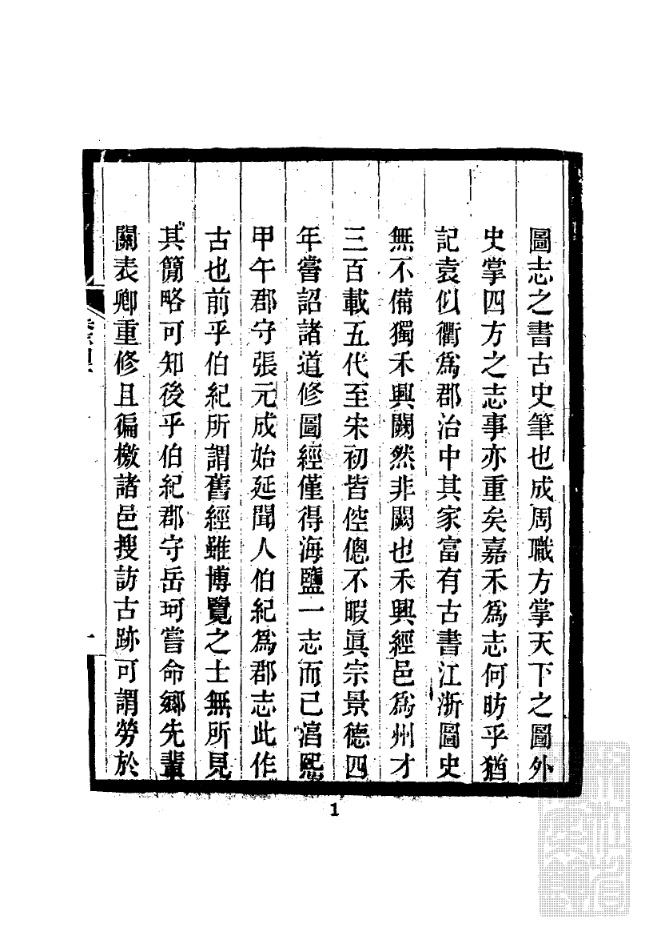 圖志之書古史筆也成周職方掌天下之圖外
史掌四方之志事亦重矣嘉禾爲志何昉乎猶
記袁似衢爲郡治中其家富有古書江浙圖史
無不備獨禾興闕然非闕也禾興經邑爲州才
三百載五代至宋初皆倥傯不暇眞宗景德四
年嘗詔諸道修圖經僅得海鹽一志而已淳熙
甲午郡守張元成始延聞人伯紀爲郡志此作
古也前乎伯紀所謂舊經雖博覽之士無所見
其簡略可知後乎伯紀郡守岳珂嘗命鄉先輩
關表卿重修且徧檄諸邑搜訪古跡可謂勞於
一
1